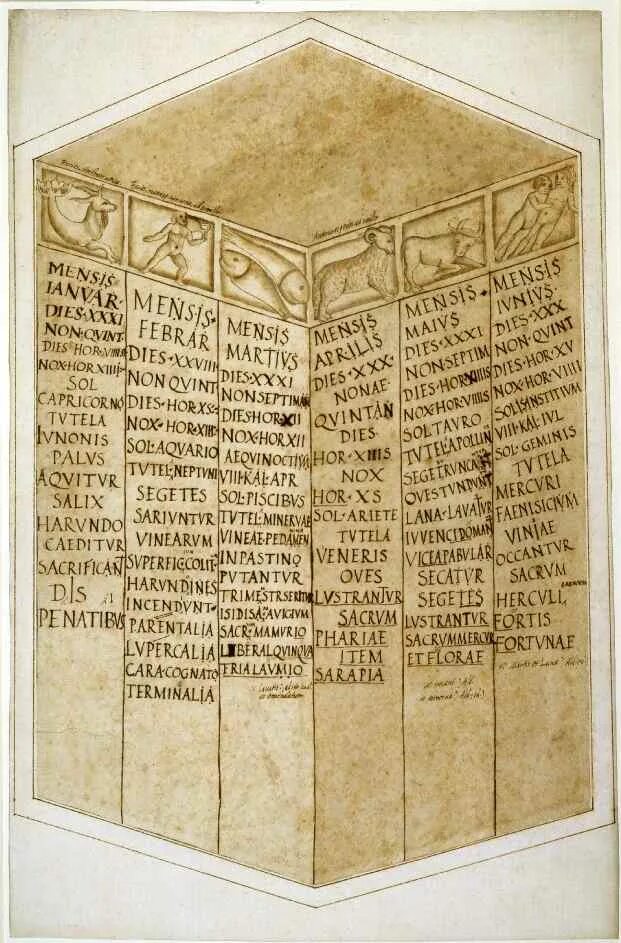 MENSIS
IANVAR·
DIES·XXXI
NON·QVINT
DIES·HOR·VIIIIS
NOX·HOR·XIIII
SOL
CAPRICORNO
TVTELA
IVNONIS
PALVS
AQVITVR
SALIX
HARVNDO
CAEDITVR
SACRIFICANT
DIS
PENATIBVS
MENSIS·
FEBRAR
DIES·XXVIII
NON QVINT
DIES·HOR·XS
NOX·HOR·XIII
SOL·AQVARIO
TVTEL·NEPTVNI
SEGETES
SARIVNTVR
VINEARVM
SVPERFIC·COLIT
HARVNDINES
INCENDVNT
PARENTALIA
LVPERCALIA
CARA·COGNATO
TERMINALIA
MENSIS
MARTIVS
DIES·XXXI
NON SEPTIMAN
DIES·HOR·XII
NOX·HOR·XII
AEQVINOCTIVM
VIII·KAL·APR
SOL·PISCIBVS
TVTEL·MINERVAE
VINEAE·PEDAMEN
IN PASTINO
PVTANTVR
TRIMESTR·SERITVR
ISIDIS·NAVIGIVM
SACR·MAMVRIO
LIBERAL·QVINQVA
TRIA·LAVATIO
MENSIS
APRILIS
DIES·XXX·
NONAE·
QVINTAN
DIES
HOR·XIIIS
NOX
HOR·XS
SOL·ARIETE
TVTELA
VENERIS
OVES
LVSTRANTVR
SACRVM
PHARIAE
ITEM
SARAPIA
MENSIS·
MAIVS
DIES·XXXI
NON·SEPTIM
DIES·HOR·XIIIIS
NOX·HOR·VIIIIS
SOL TAVRO
TVTELA·APOLLIN
SEGET·RVNCANT
OVES TVNDVNT
LANA·LAVATVR
IVVENCI DOMANT
VICEA PABVLAR
SECATVR
SEGETES
LVSTRANTVR
SACRVM MERCVR
ET FLORAE
MENSIS
IVNIVS·
DIES·XXX
NON·QVINT
DIES·HOR·XV
NOX·HOR·VIIII
SOLIS INSTITIVM
VIII·KAL·IVL
SOL·GEMINIS
TVTELA
MERCVRI
FAENISICIVM
VINIAE
OCCANTVR
SACRVM
HERCVLI
FORTIS
FORTVNAE